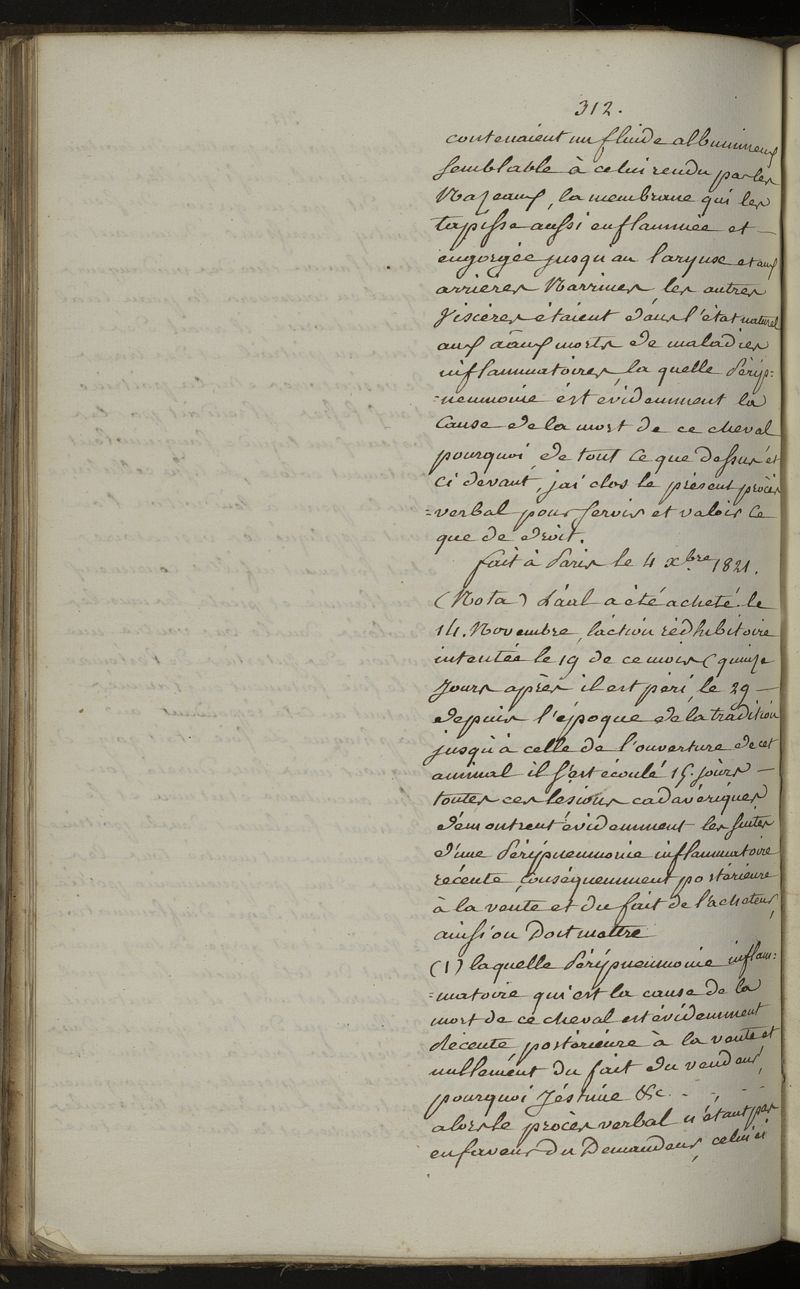 312.
contenaient un fluide albumineux
semblable à celui rendu par les
Nazeaux, la membrane qui les
tapisse aussi enflammée et —
engorgée jusqu'au larynxe et aux
arrières Narrines les autres
Viscères étaient dans l'état naturel
aux morts de maladies
inflammatoires, la quelle Périp=
=neumonie ést évidemment la
Cause de la mort de ce cheval
pourquoi, de tout ce que dessus et
ci devant, jai clos le présent procès
=verbal pour servir et valoir Ce
que de droit.
fait à Paris le 4 xbre 1821.
(Nota) a été acheté le
14. Novembre, l'action rédhibitoire
intentée le 19 de ce mois (quinze
Jours après il est péri, le 29 —
depuis l'époque de la tradition
jusqu'à celle de l'ouverture de cet
animal il s'est écoulé 15. jours —
toutes ces lesions cadavériques
démontrent évidemment les suites
d'une Péripneumonie inflammatoire
récente, conséquemment postérieure
à la vente et du fait de l'acheteur,
ainsi on Doit mettre
(1) laquelle Péripneumonie inflam:
=matoire qui est la cause de la
mort de ce cheval est évidemment
récente, postérieure à la vente et
nullemént du fait du vendeur,
pourquoi J'éstime &c. - - , - -
alors le procès verbal n'étant pas
en faveur du Demandeur, celui ci